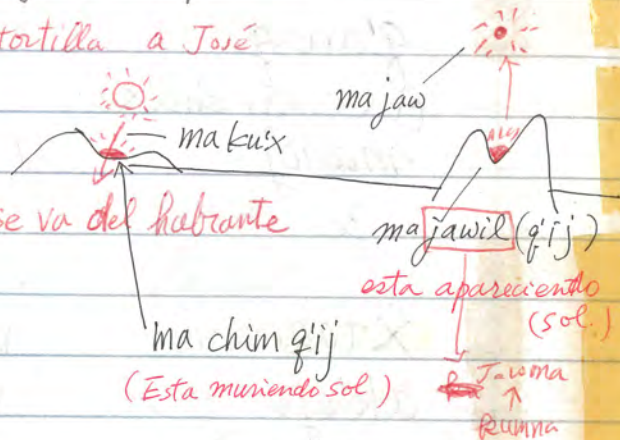 tortilla a José
ma jaw
ma ku'x
se va del habrante
ma jawil (q'ij)
esta apareciendo
(sol.)
ma chim q'ij
(Esta muriendo sol)